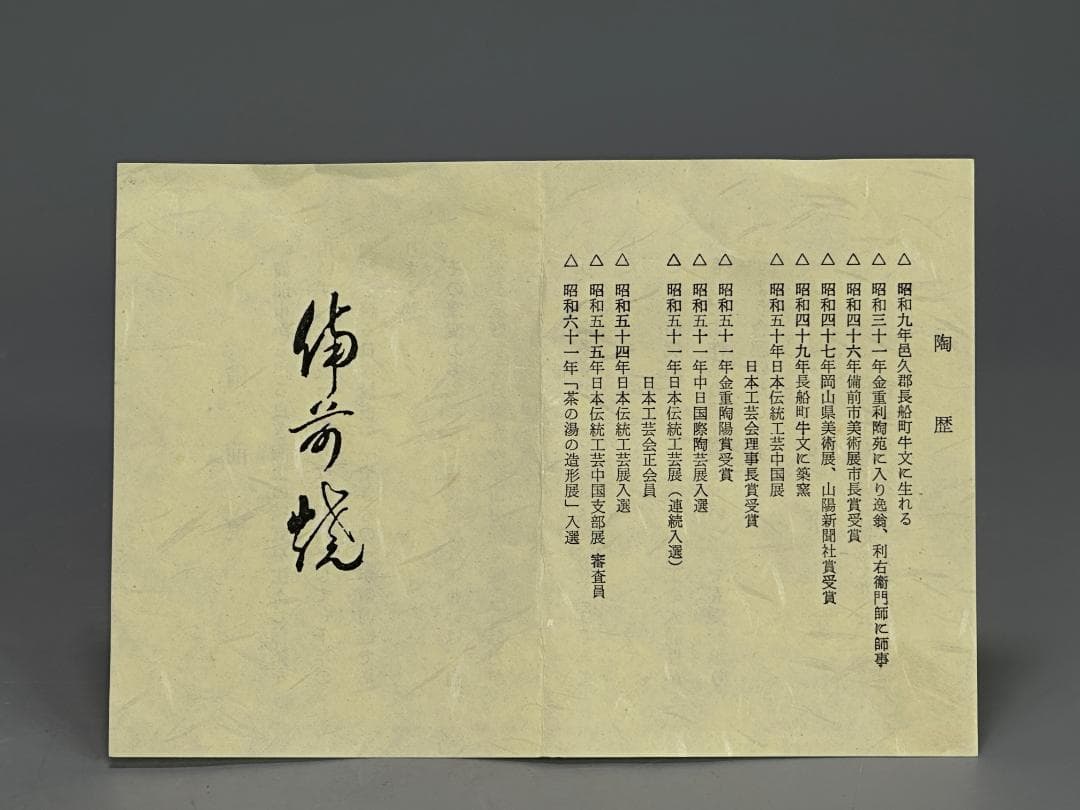 陶歴
△ 昭和九年邑久郡長船町牛文に生れる
△ 昭和三十一年金重利陶苑に入り逸翁、利右衞門師に師事
△ 昭和四十六年備前市美術展市長賞受賞
△ 昭和四十七年岡山県美術展、山陽新聞社賞受賞
△ 昭和四十九年長船町牛文に築窯
△ 昭和五十年日本伝統工芸中国展
日本工芸会理事長賞受賞
△ 昭和五十一年金重陶陽賞受賞
△ 昭和五十一年中日国際陶芸展入選
△ 昭和五十一年日本伝統工芸展（連続入選）
日本工芸会正会員
△ 昭和五十四年日本伝統工芸展入選
△ 昭和五十五年日本伝統工芸中国支部展 審査員
△ 昭和六十一年「茶の湯の造形展」入選
備前燒